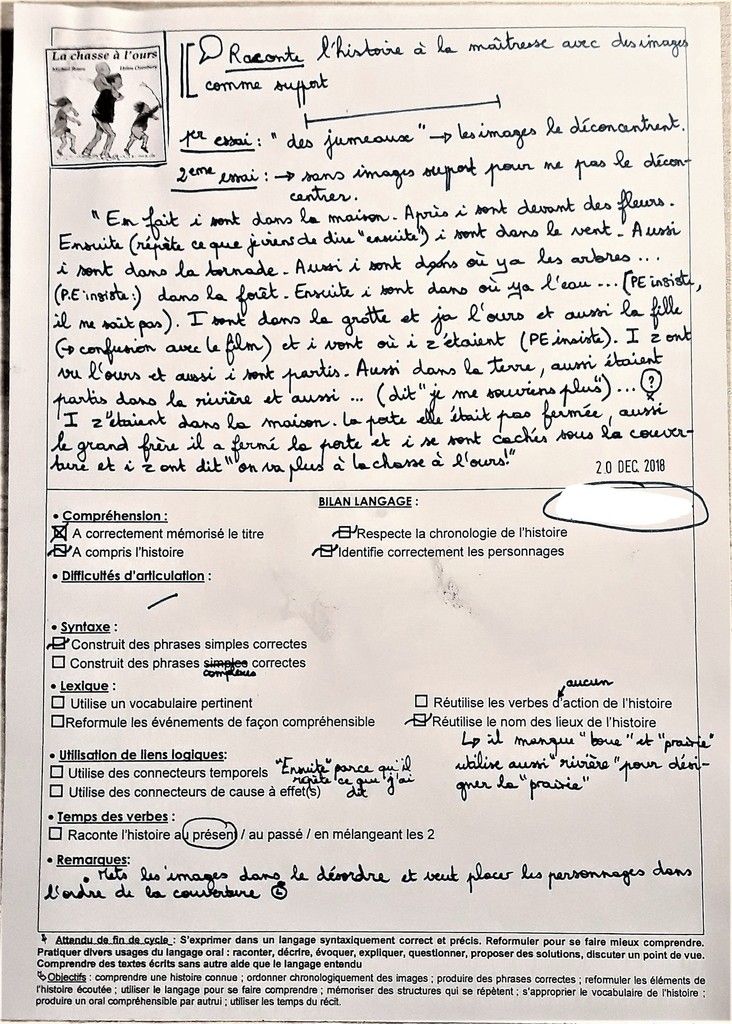 La chasse à l'ours
Michael Rosen Helen Oxenbury
Raconte l'histoire à la maîtresse avec des images
comme suport
1er essai : "des jumeaux" → les images le déconcentrent.
2eme essai : → sans images suport pour ne pas le décon-
centrer.
"En fait i sont dans la maison. Après i sont devant des fleurs.
Ensuite (répète ce que je viens de dire "ensuite") i sont dans le vent. Aussi
i sont dans la tornade. Aussi i sont dans où ya les arbres ...
(P.E insiste:) dans la forêt. Ensuite i sont dans où ya l'eau ... (PE insiste,
il ne sait pas). I sont dans la grotte et ja l'ours et aussi la fille
(→ confusion avec le film) et i vont où i z'étaient (PE insiste). I z ont
vu l'ours et aussi i sont partis. Aussi dans la terre, aussi étaient
partis dans la rivière et aussi ... (dit "je me souviens plus") ... ?
I z'étaient dans la maison. La porte elle était pas fermée, aussi
le grand frère il a fermé la porte et i se sont cachés sous la couver-
ture et i z ont dit "on va plus à la chasse à l'ours!"
20 DEC. 2018
BILAN LANGAGE :
• Compréhension :
A correctement mémorisé le titre
Respecte la chronologie de l'histoire
A compris l'histoire
Identifie correctement les personnages
• Difficultés d'articulation :
• Syntaxe :
Construit des phrases simples correctes
Construit des phrases simples correctes
complexes
• Lexique :
aucun
Utilise un vocabulaire pertinent
Réutilise les verbes d'action de l'histoire
Reformule les événements de façon compréhensible
Réutilise le nom des lieux de l'histoire
↳ il manque "boue" et "prairie"
utilise aussi "rivière" pour dési-
gner la "prairie"
• Utilisation de liens logiques:
Utilise des connecteurs temporels "Ensuite" parce qu'il
répète ce que j'ai
dit
Utilise des connecteurs de cause à effet(s)
• Temps des verbes :
Raconte l'histoire au présent / au passé / en mélangeant les 2
• Remarques:
• Mets les images dans le désordre et veut placer les personnages dans
l'ordre de la couverture
Attendu de fin de cycle : S'exprimer dans un langage syntaxiquement correct et précis. Reformuler pour se faire mieux comprendre.
Pratiquer divers usages du langage oral : raconter, décrire, évoquer, expliquer, questionner, proposer des solutions, discuter un point de vue.
Comprendre des textes écrits sans autre aide que le langage entendu
Objectifs : comprendre une histoire connue ; ordonner chronologiquement des images ; produire des phrases correctes ; reformuler les éléments de
l'histoire écoutée ; utiliser le langage pour se faire comprendre ; mémoriser des structures qui se répètent ; s'approprier le vocabulaire de l'histoire ;
produire un oral compréhensible par autrui ; utiliser les temps du récit.